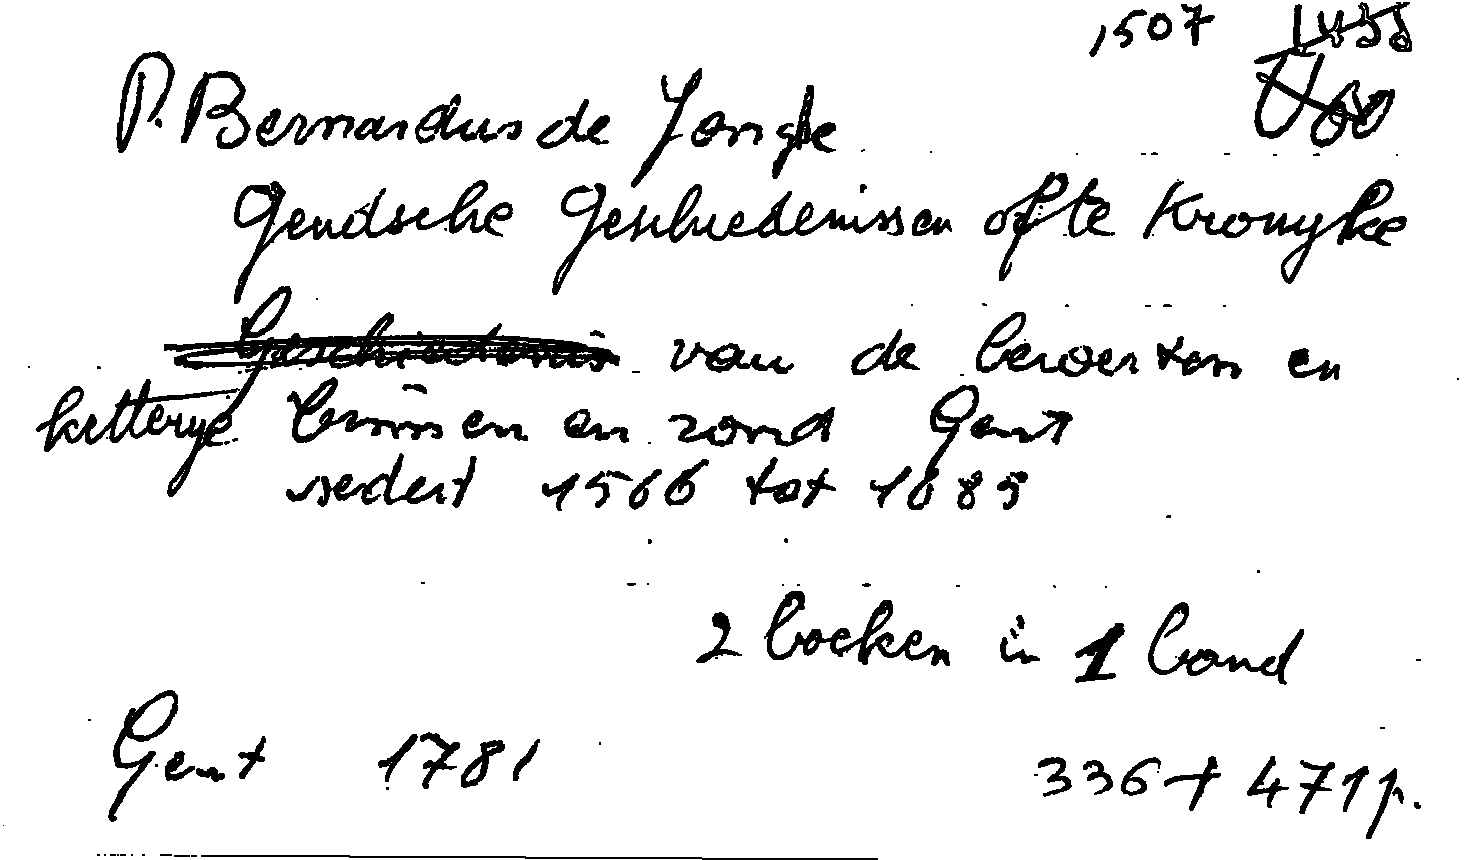 1507
P. Bernardus de Jonghe
Gendsche Geschiedenissen ofte Kronyke
van de beroerten en
ketterye binnen en rond Gent
sedert 1566 tot 1685
2 boeken in 1 band
Gent 1781
336 + 471 p.